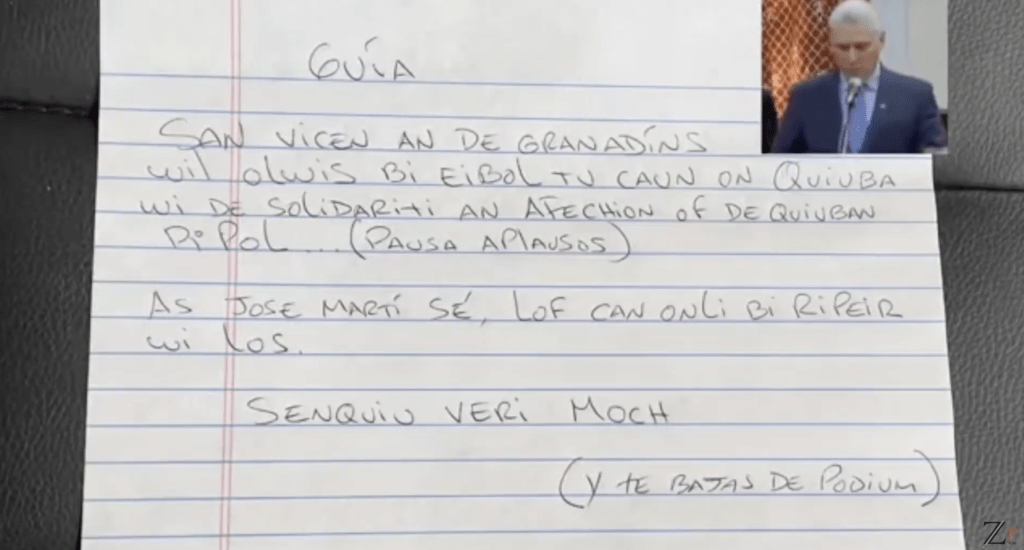 GUÍA
SAN VICEN AN DE GRANADÍNS
wil olwis Bi EiBOL TU CAUN ON QUIUBA
wi DE SOLiDARiti AN AFECHION of DE QUIUBAN
PiPOL... (PAUSA APLAUSOS)
AS JOSE MARTÍ SÉ, LOF CAN ONLi Bi RiPEiR
wi LOS.
SENQUIU VERi MOCH
(Y TE BAJAS DE PODIUM)